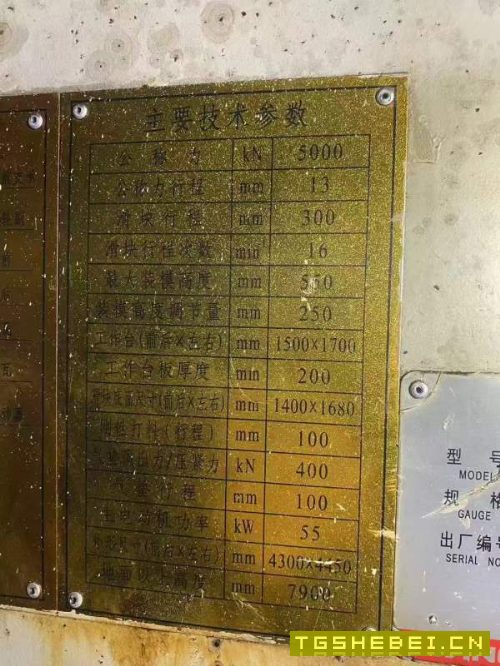 主要技术参数
公称力 kN 5000
公称力行程 mm 13
滑块行程 mm 300
滑块行程次数 min 16
最大装模高度 mm 550
装模高度调节量 mm 250
工作台(前后×左右) mm 1500×1700
工作台板厚度 min 200
滑块底面尺寸(前后×左右) mm 1400×1680
打料(行程) mm 100
气垫压出力/压紧力 kN 400
气垫行程 mm 100
主电动机功率 kW 55
外形尺寸(前后×左右) mm 4300×4450
地面以上高度 mm 7900
型 号
MODEL
规 格
GAUGE
出厂编号
SERIAL NO
TGSHEBEI.CN